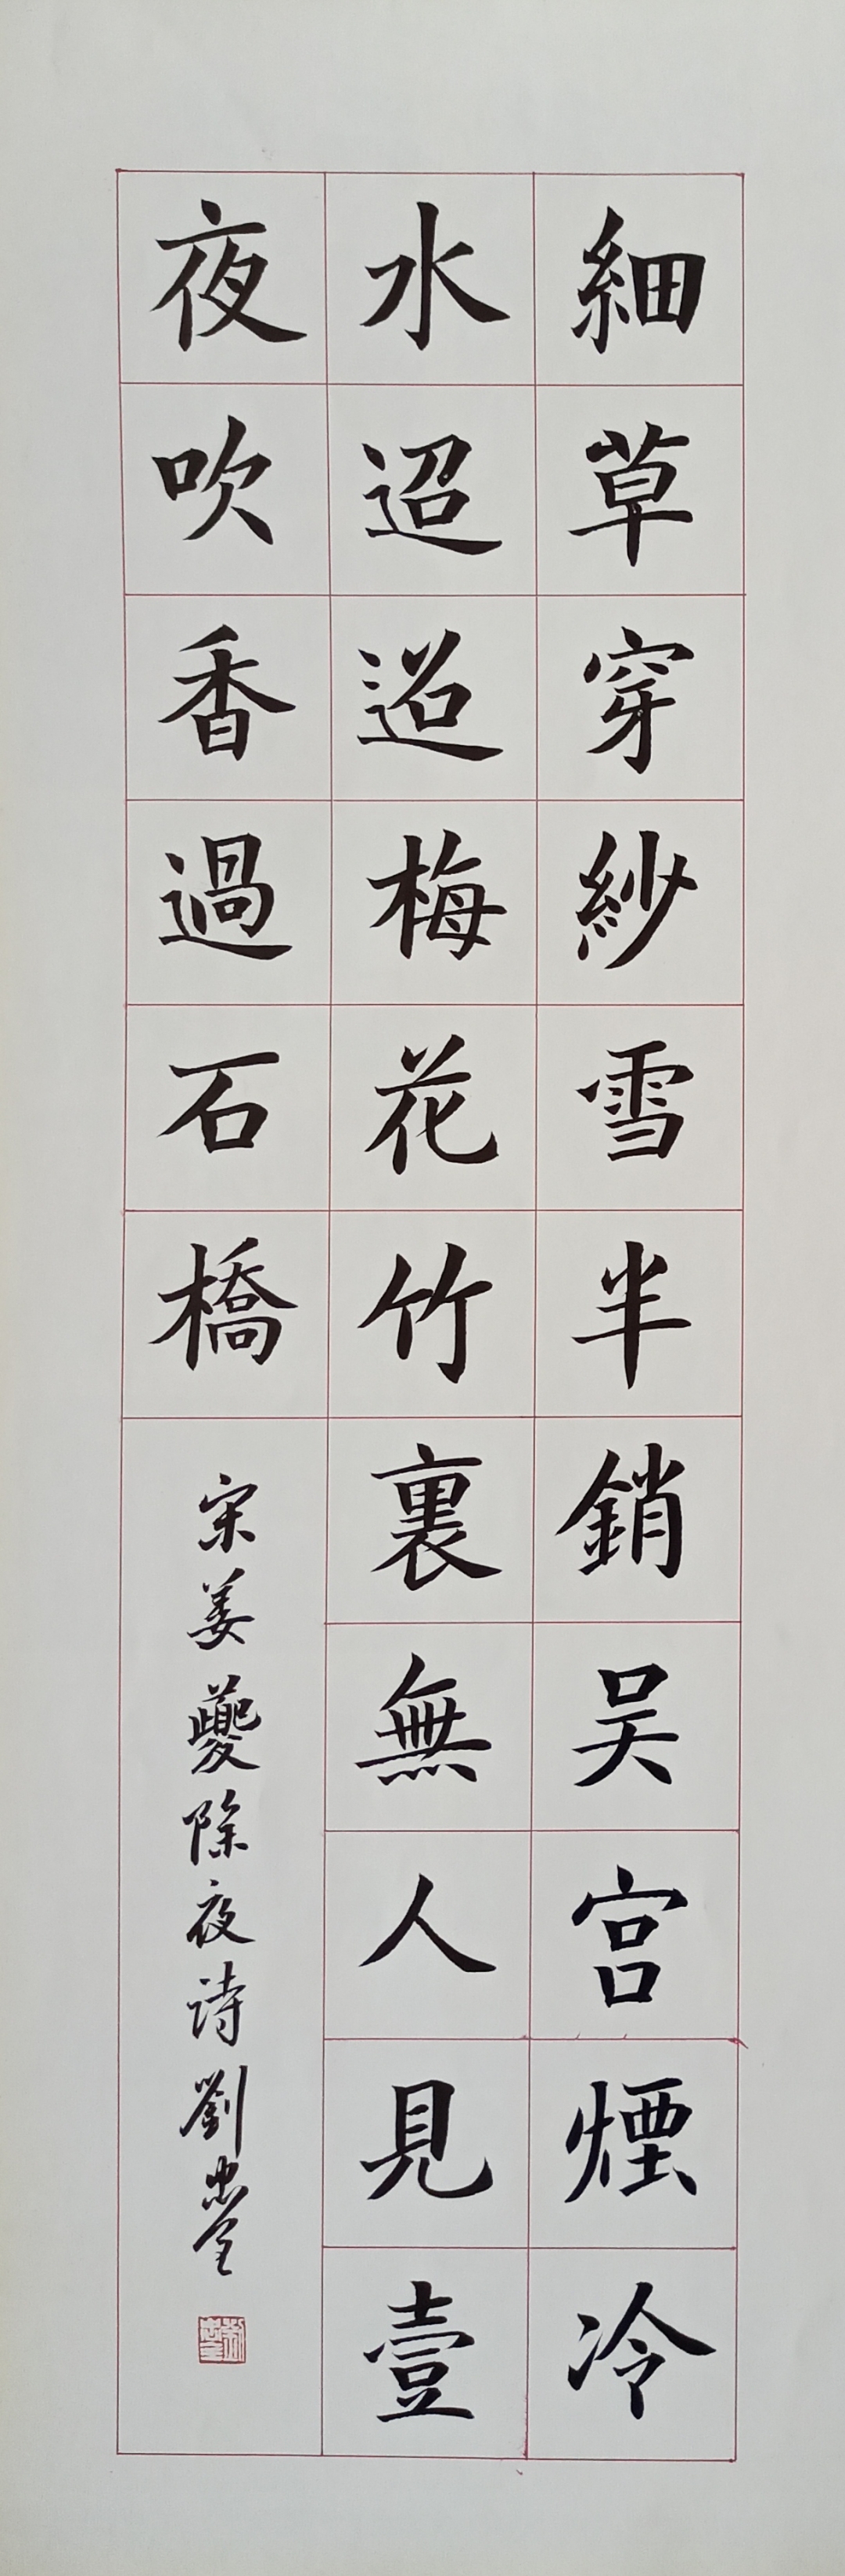 細草穿紗雪半銷吴宫煙冷
水迢迢梅花竹裏無人見壹
夜吹香過石橋
宋姜夔除夜诗劉忠全